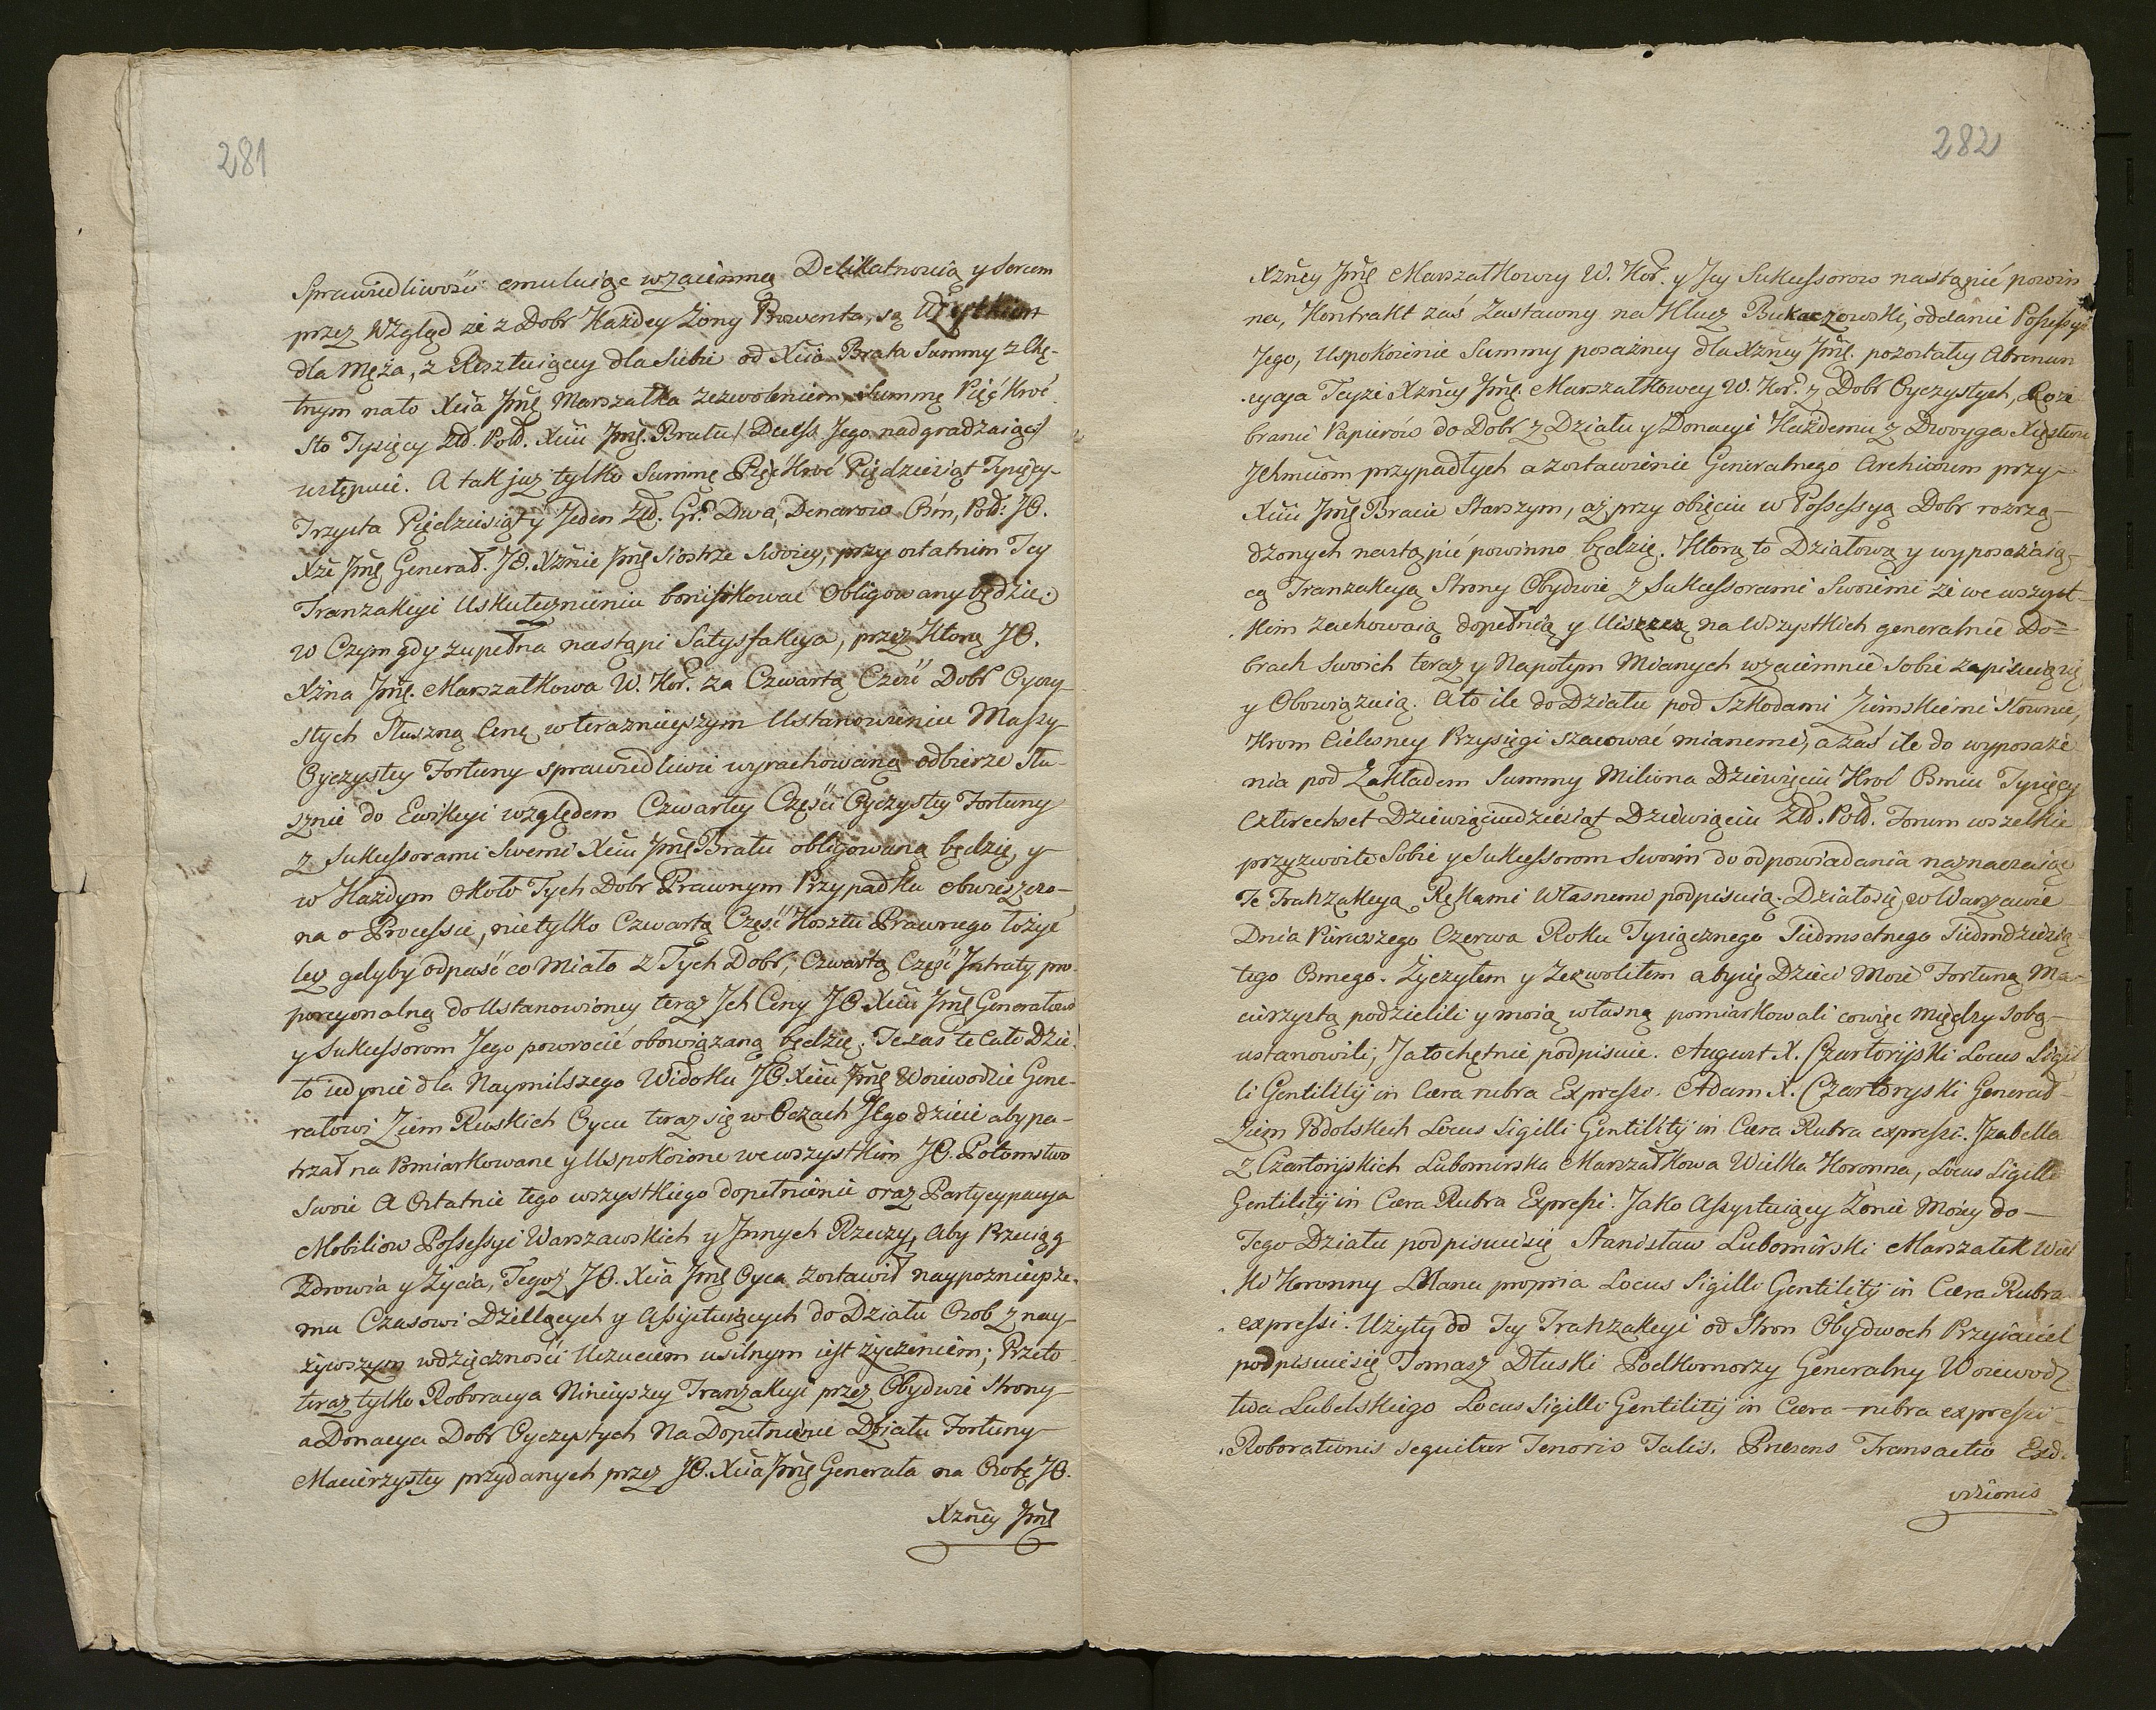 281
Sprawiedliwości emuluiąc wzaiemną Delikatnością y Sercem
przez Wzgląd że z Dobr Każdey Żony Prowenta, są Użytkiem
dla Męża, z Resztuiącey dla Siebie od Xcia Brata Summy z Chę-
tnym nato Xcia Jmć Marszałka zezwoleniem Summę Pięćkroć
Sto Tysięcy Zł. Pol. Xciu Jmć Bratu/ Deess Jego nadgradzaiąc/
ustępuie. A tak juz tylko Summę Pięćkroć Piędziesiąt Tysięcy
Trzysta Piędziesiąt y Jeden Zł. Gr. Dwa, Denarow Ośm, Pol: JO.
Xże Jmć Generał. JO. Xżnie Jmć Siostrze Swoiey, przy ostatnim Tey
Tranzakcyi Uskutecznieniu bonifikować Obligowany będzie.
w Czym gdy zupełna nastąpi Satysfakcya, przez Którą JO.
Xżna Jmć. Marszałkowa W. Kor. za Czwartą Część Dobr Oyczy-
stych Słuszną Cenę w terazniejszym Ustanowieniu Massy
Oyczystey Fortuny sprawiedliwie wyrachowaną odbierze Słu-
sznie do Ewikcyi względem Czwartey Części Oyczystey Fortuny
z Sukcessorami Swemi Xciu Jmć Bratu obligowaną będzie, y
w Każdym około Tych Dobr Prawnym Przypadku obwieszczo-
na o Processie, nietylko Czwartą Część Kosztu Prawnego łożyć
lecz gdyby odpaść co Miało z Tych Dobr, Czwartą Część Intraty pro-
porcyonalną do Ustanowioney teraz Jch Ceny JO. Xciu Jmć Generałowi
y Sukcessorom Jego powrocić obowiązaną będzie. Te zaś te Całe Dzie-
ło iedynie dla Naymilszego Widoku JO. Xciu Jmć Woiewodzie Gene-
rałowi Ziem Ruskich Oycu teraz się w Oczach Jego dzieie aby pa-
trzał na Pomiarkowane y Uspokoione we wszystkim JO. Potomstwo
Swoie A Ostatnie tego wszystkiego dopełnienie oraz Partycypacya
Mobiliow Possessyi Warszawskich y Jnnych Rzeczy, Aby Przeciąg
Zdrowia y Życia, Tegoż JO. Xcia Jmć Oyca zostawił naypoznieysze-
mu Czasowi Dzielących y Assystuiących do Działu Osob z nay-
żywszym wdzięczności Uczuciem usilnym iest życzeniem; Przeto
teraz tylko Roboracya Ninieyszey Tranzakcyi przez Obydwie Strony
a Donacya Dobr Oyczystych Na Dopełnienie Działu Fortuny
Macierzystey przydanych przez JO. Xcia Jmć Generała na Osobę JO.
Xżney Jmć
282
Xżney Jmć Marszałkowey W. Kor. y Jey Sukcessorow nastąpić powin
na, Kontrakt zaś Zastawny na Klucz Bukaczowski, oddanie Possessyi
Jego, Uspokoienie Summy posażney dla Xżney Jmć. pozostałey Abrenun
cyacya Teyże Xżney Jmć Marszałkowey W. Kor. z Dobr Oyczystych, Roze
branie Papierow do Dobr z Działu y Donacyi Każdemu z Dwoyga Xięstwa
Jchmciom przypadłych a zostawienie Generalnego Archiwum przy
Xciu Jmć Bracie Starszym, aż przy obięciu w Possessyą Dobr rozrzą-
dzonych nastąpić powinno będzie. Którą to Działową y wyposażaią-
cą Tranzakcyą Strony Obydwie z Sukcessorami Swoiemi że we wszyst-
kim zachowaią dopełnią y Uiszczą na Wszystkich generalnie Do=
brach Swoich teraz y Napotym Mianych wzaiemnie Sobie zapisuią się
y Obowiązuią. A to ile do Działu pod Szkodami Ziemskiemi Słownie,
Krom Cielesney Przysięgi szacować mianemi, a zaś ile do wyposaże
nia pod Zakładem Summy Miliona Dziewięciu Kroć Ośmiu Tysięcy
Czterechset Dziewięciudziesiąt Dziewięciu Zł. Pol. Forum wszelkie
przyzwoite Sobie y Sukcessorom Swoim do odpowiadania naznaczaiąc
Te Tranzakcyą Rękami Własnemi podpisuią. Działo się w Warszawie
Dnia Pierwszego Czerwa Roku Tysiącznego Siedmsetnego Siedmdziesią
tego Osmego. Życzyłem y Zezwoliłem aby się Dzieci Moie Fortuną Ma-
cierzystą podzielili y moią własną pomiarkowali cowięc między Sobą
ustanowili, Ja to chętnie podpisuie. August X. Czartoryski Locus Sigil
li Gentilitij in Cera rubra Expresso. Adam X. Czartoryski Generał
Ziem Podolskich Locus Sigilli Gentilitij in Cera Rubra expressi. Jzabella
z Czartoryskich Lubomirska Marszałkowa Wielka Koronna, Locus Sigilli
Gentilitij in Cera Rubra Expressi. Jako Assystuiący Żonie Moiey do
Tego Działu podpisuie się Stanisław Lubomirski Marszałek Wiel
ki Koronny Manu propria Locus Sigilli Gentilitij in Cera Rubra
expressi. Użyty do Tey Tranzakcyi od Stron Obydwoch Przyiaciel
podpisuie się Tomasz Dłuski Podkomorzy Generalny Woiewodz
twa Lubelskiego Locus Sigilli Gentilitij in Cera rubra expressi
Roborationis sequitur Tenoris Talis. Praesens Transactio Exd.
visionis